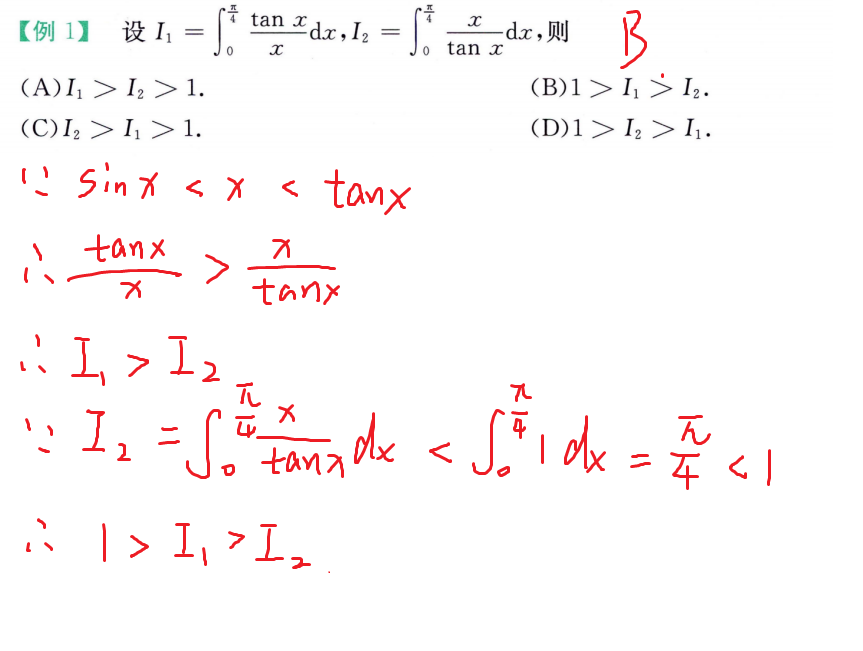 【例 1】 设 I₁ = ∫₀^{π/4} tan x / x dx, I₂ = ∫₀^{π/4} x / tan x dx, 则 B
(A) I₁ > I₂ > 1. (B) 1 > I₁ > I₂.
(C) I₂ > I₁ > 1. (D) 1 > I₂ > I₁.
∵ sin x < x < tan x
∴ tan x / x > x / tan x
∴ I₁ > I₂
∵ I₂ = ∫₀^{π/4} x / tan x dx < ∫₀^{π/4} 1 dx = π/4 < 1
∴ 1 > I₁ > I₂